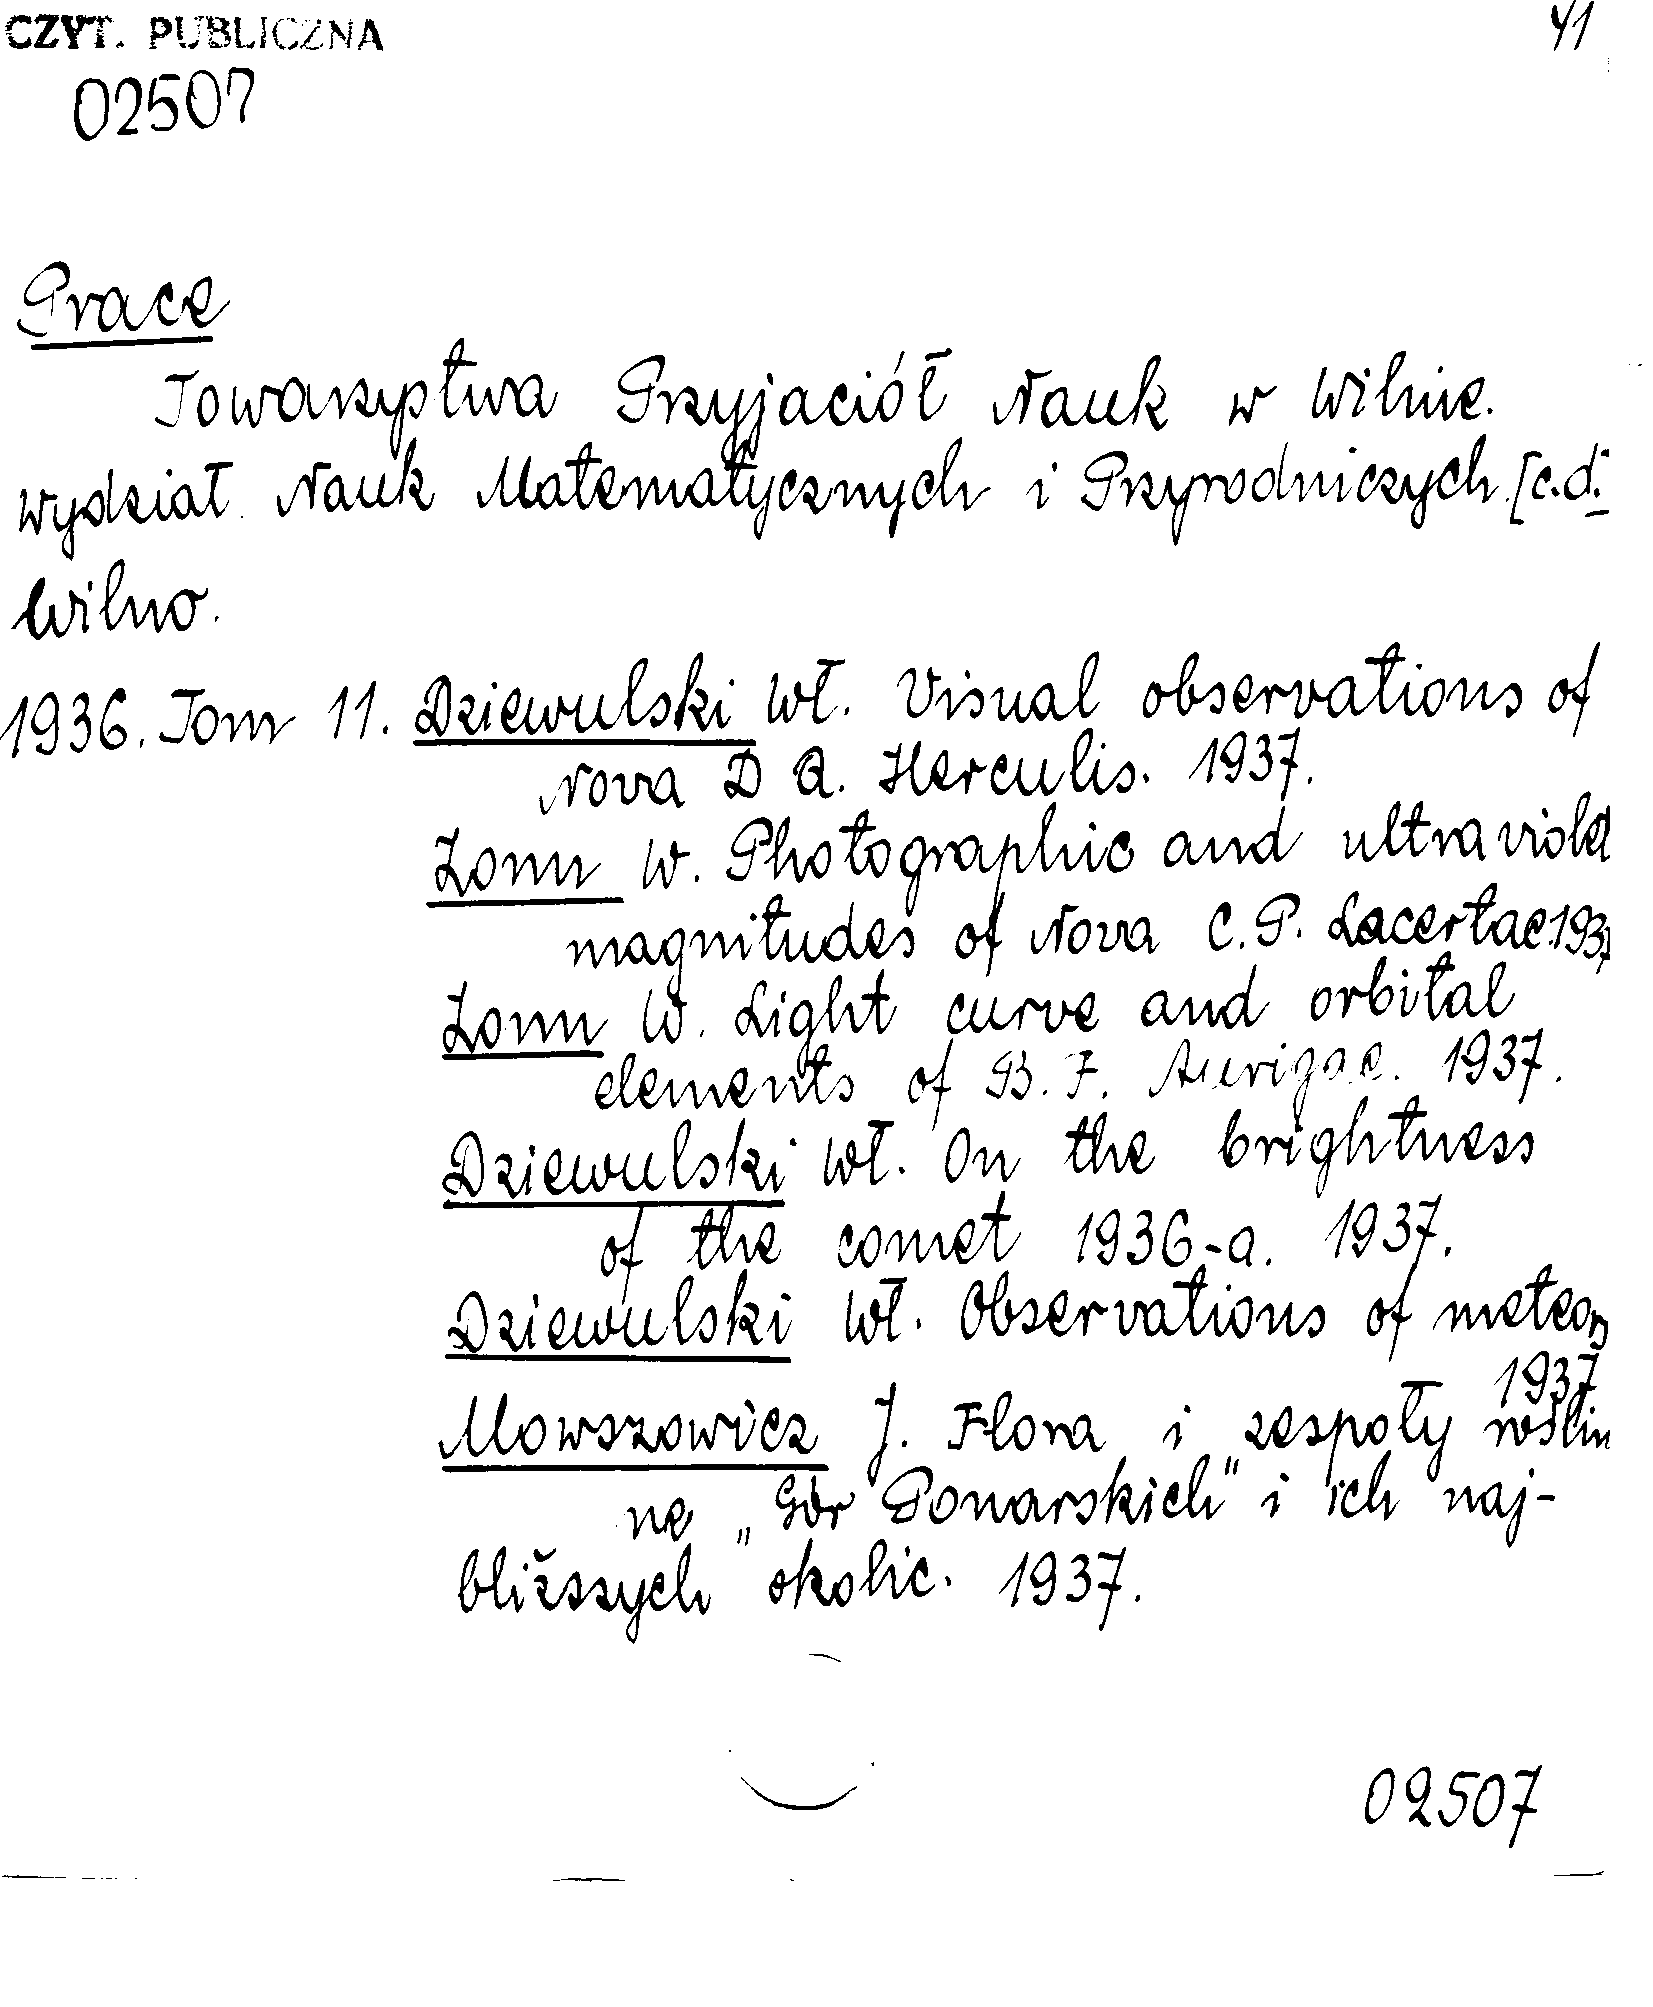 CZYT. PUBLICZNA
41
02507
Prace
Towarzystwa Przyjaciół Nauk w Wilnie.
Wydział Nauk Matematycznych i Przyrodniczych. [c.d.
Wilno.
1936. Tom 11. Dziewulski Wł. Visual observations of
Nova D Q. Herculis. 1937.
Zonn W. Photographic and ultraviolet
magnitudes of Nova C.P. Lacertae. 1937
Zonn W. Light curve and orbital
elements of B. F. Aurigae. 1937.
Dziewulski Wł. On the brightness
of the comet 1936-a. 1937.
Dziewulski Wł. Observations of meteors
1937
Mowszowicz J. Flora i zespoły roślin
ne „Gór Ponarskich" i ich naj-
bliższych okolic. 1937.
02507